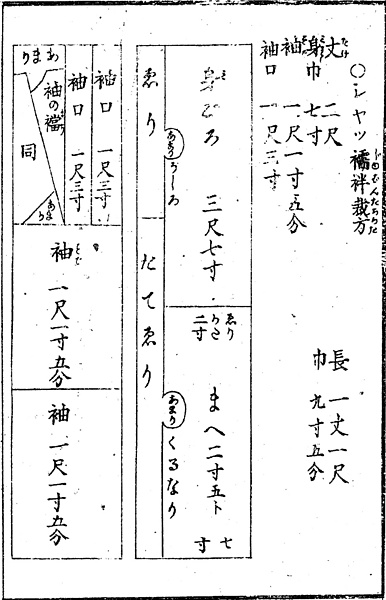 ○シャツ襦袢裁方
丈 二尺
身巾 七寸
袖 一尺一寸五分
袖口 一尺三寸
長 一丈一尺
巾 九寸五分
身ごろ 三尺七寸
ゑり
二寸
まへ二寸五卜
七寸
ゑり
たてゑり
くるなり
袖口 一尺三寸
袖口 一尺三寸
あまり
袖の襠
同
袖 一尺一寸五分
袖 一尺一寸五分